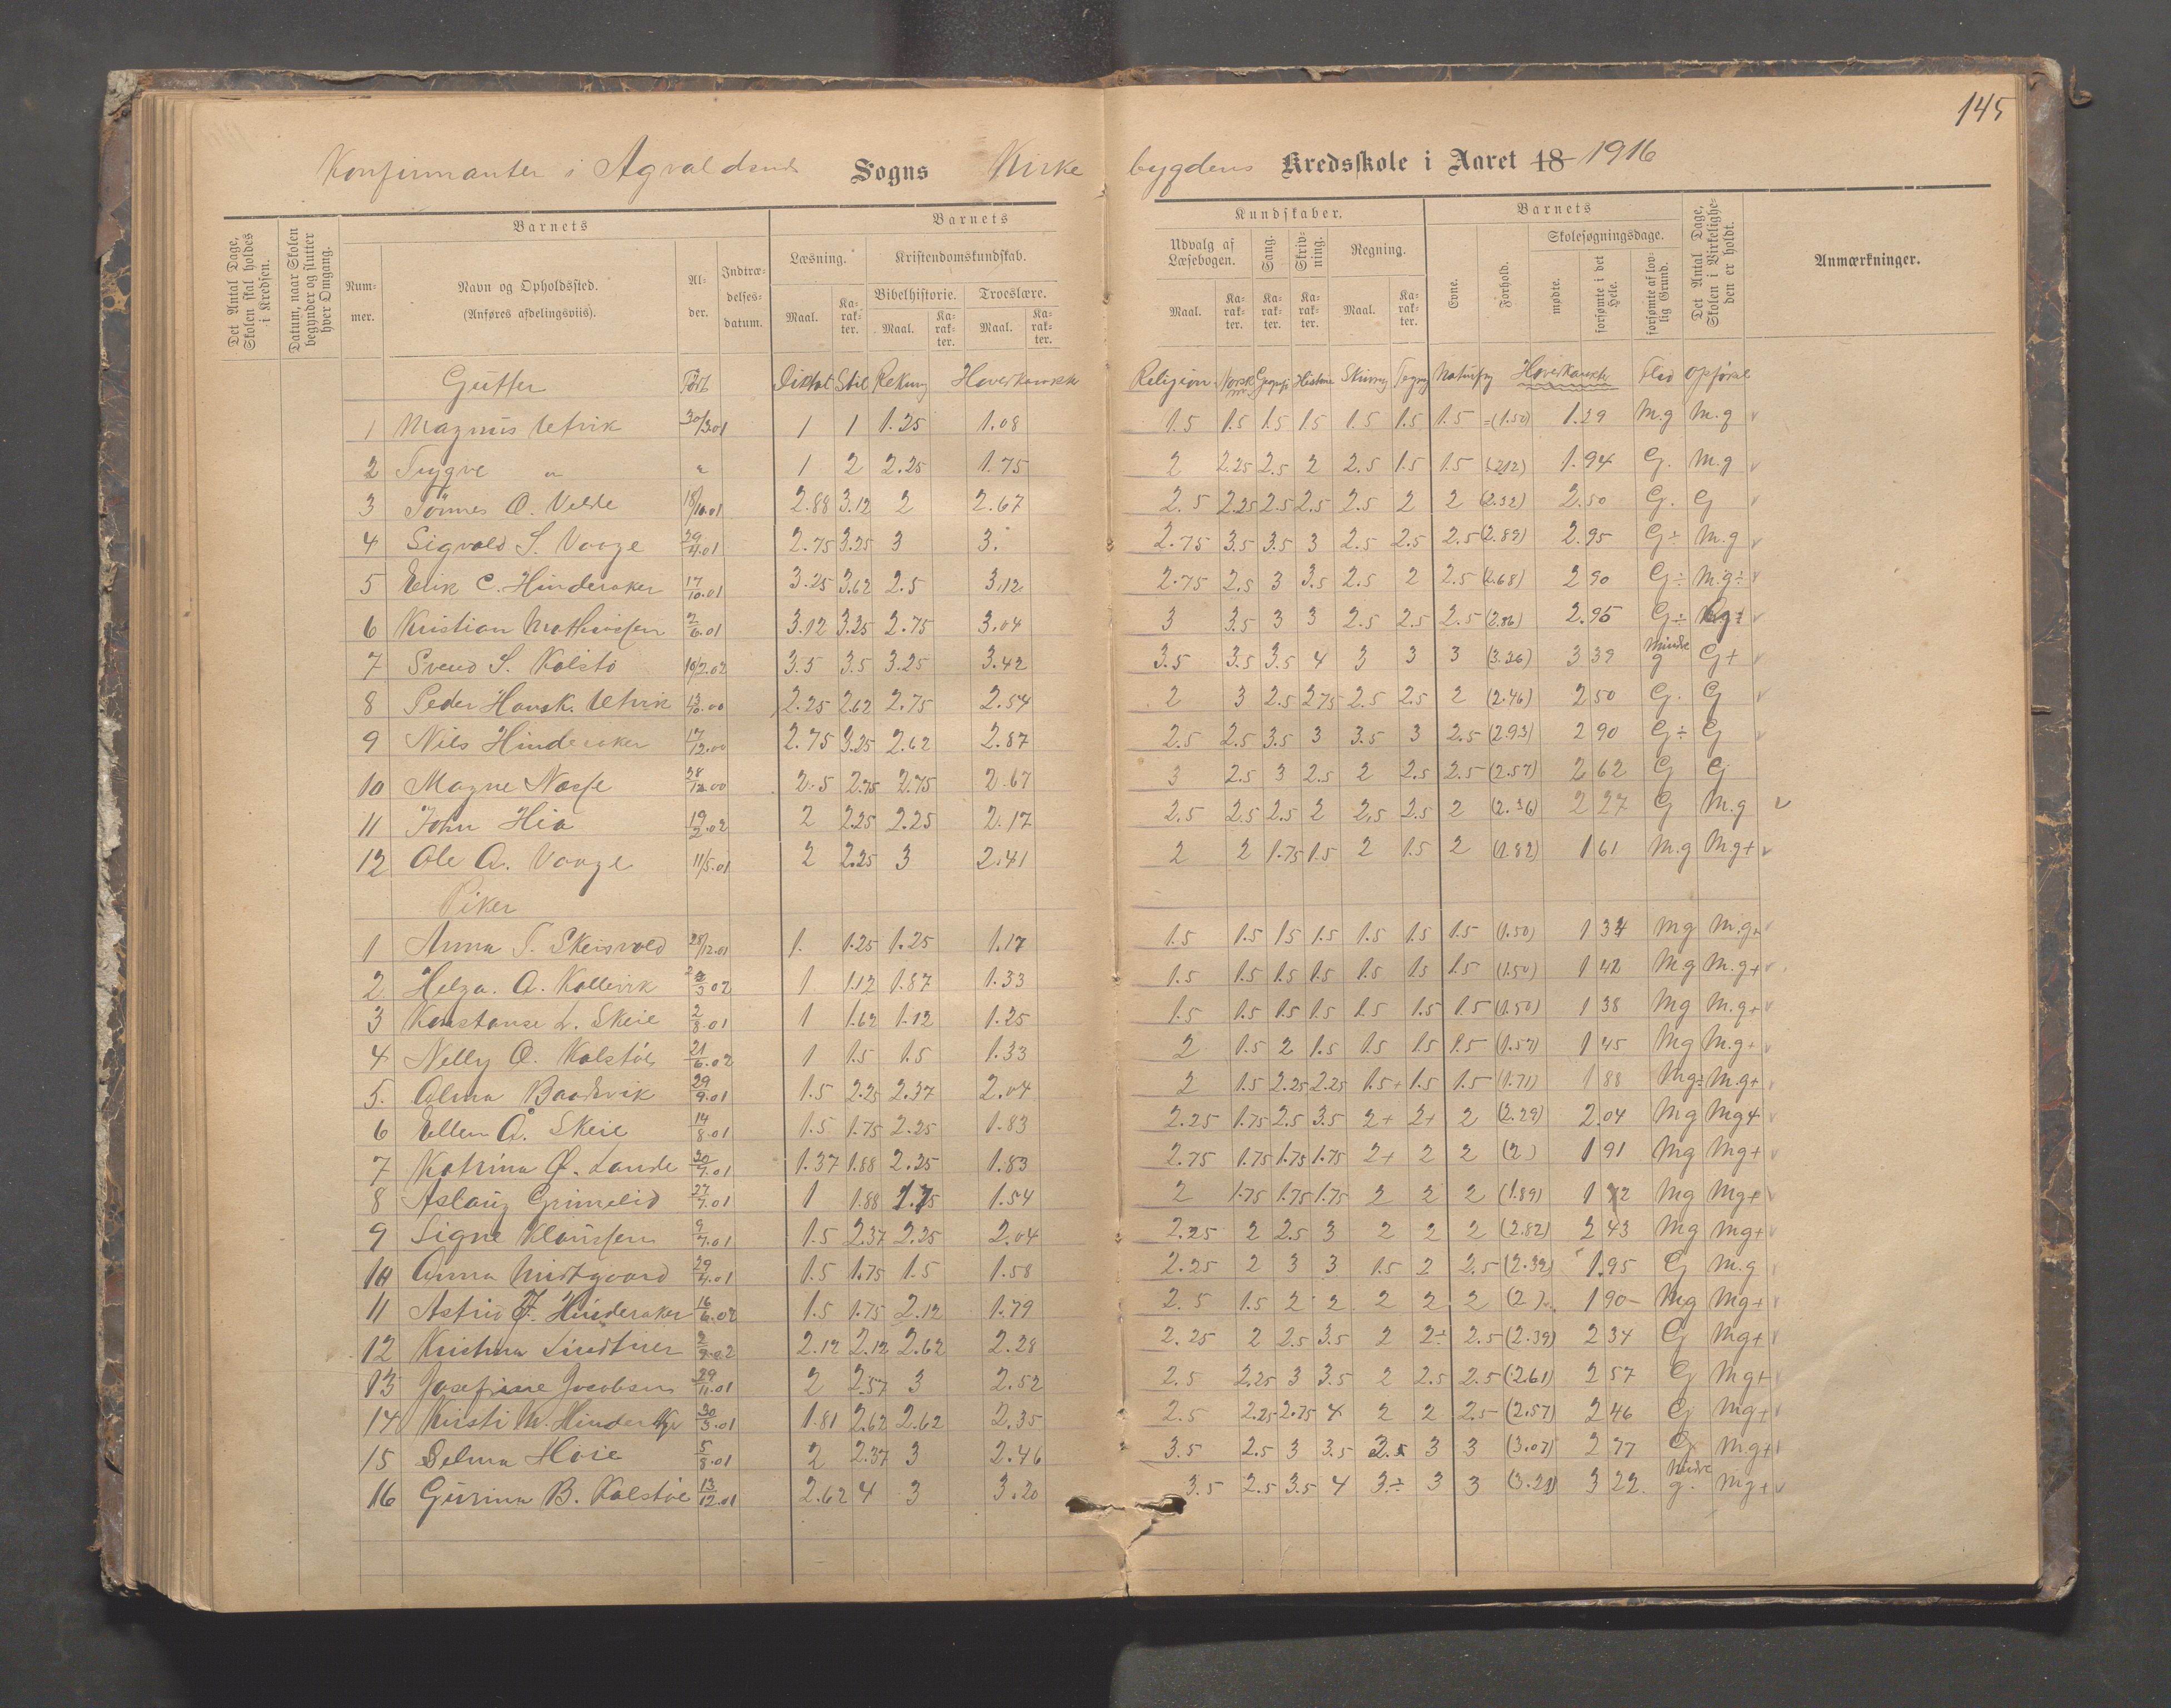 145
Konfirmanter i Agvaldsnes Sogns Kirke bygdens Kredsskole i Aaret 18 1916
Det Antal Dage, Skolen skal holdes i Kredsen.
Datum, naar Skolen begynder og slutter hver Omgang.
Barnets
Nummer.
Navn og Opholdssted.
(Anføres afdelingsviis).
Alder.
Indtrædelsesdatum.
Barnets
Læsning.
Kristendomskundskab.
Bibelhistorie.
Troeslære.
Maal.
Karakter.
Maal.
Karakter.
Maal.
Karakter.
Kundskaber.
Udvalg af Læsebogen.
Sang.
Skrivning.
Regning.
Maal.
Karakter.
Karakter.
Karakter.
Maal.
Karakter.
Barnets
Evne.
Forhold.
Skolesøgningsdage.
mødte.
forsømte i det Hele.
forsømte af lovlig Grund.
Det Antal Dage, Skolen i Virkeligheden er holdt.
Anmærkninger.
Gutter Født Diktat Stil Rekning Hoverkarakter Religion Norsk Historie Skrivning Hoverkarakter Flid Opførsel
1 Magnus Utvik 30/3.01 1 1 1.25 1.08 1.5 1.5 1.5 1.5 1.5 1.5 1.5 =(1.50) 1.29 M.g M.g v
2 Trygve " " 1 2 2.25 1.75 2 2.25 2.5 2 2.5 1.5 1.5 (2.12) 1.94 G. M.g v
3 Tønnes O. Velde 18/10.01 2.88 3.12 2 2.67 2.5 2.25 2.5 2.5 2.5 2 2 (2.32) 2.50 G. G v
4 Sigvald S. Vaage 29/4.01 2.75 3.25 3 3. 2.75 3.5 3.5 3 2.5 2.5 2.5 (2.89) 2.95 G÷ M.g v
5 Erik C. Hinderaker 17/10.01 3.25 3.62 2.5 3.12 2.75 2.5 3 3.5 2.5 2 2.5 (2.68) 2 90 G÷ M.g÷ v
6 Kristian Mathiassen 2/6.01 3.12 3.25 2.75 3.04 3 3.5 3 3 2.5 2.5 2.5 (2.86) 2.95 G÷ v
7 Svend S. Kolstø 10/2.02 3.5 3.5 3.25 3.42 3.5 3.5 3.5 4 3 3 3 (3.36) 3 39 mindre g G+ v
8 Peder Hansk. Utvik 13/10.00 2.25 2.62 2.75 2.54 2 3 2.5 2.75 2.5 2.5 2 (2.46) 2 50 G. G v
9 Nils Hinderaker 17/12.00 2.75 3.25 2.62 2.87 2.5 2.5 3.5 3 3.5 3 2.5 (2.93) 2 90 G÷ G v
10 Magne Nasse 28/12.00 2.5 2.75 2.75 2.67 3 2.5 3 2.5 2 2.5 2.5 (2.57) 2 62 G G
11 John Hia 19/2.02 2 2.25 2.25 2.17 2.5 2.5 2.5 2 2.5 2.5 2 (2.36) 2 27 G M.g v
12 Ole A. Vaage 11/5.01 2 2.25 3 2.41 2 2 1.75 1.5 2 1.5 2 (1.82) 1 61 M.g M.g+ v
Piker
1 Anna T. Skeisvold 28/12.01 1. 1.25 1.25 1.17 1.5 1.5 1.5 1.5 1.5 1.5 1.5 (1.50) 1 34 Mg M.g+ v
2 Helga. A. Kallevik 3.02 1 1.12 1.87 1.33 1.5 1.5 1.5 1.5 1.5 1.5 1.5 (1.50) 1 42 M.g M.g+ v
3 Konstanse L. Skeie 2/8.01 1 1.62 1.12 1.25 1.5 1.5 1.5 1.5 1.5 1.5 1.5 (1.50) 1 38 Mg M.g+ v
4 Nelly O. Kolstöe 21/6.02 1 1.5 1.5 1.33 2 1.5 2 1.5 1.5 1.5 1.5 (1.57) 1 45 Mg M.g+ v
5. Alma Baadsvik 29/9.01 1.5 2.25 2.37 2.04 2 1.5 2.25 2.25 1.5+ 1.5 1.5 (1.71) 1 88 Mg÷ M.g+ v
6 Ellen Å. Skeie 14/8.01 1.5 1.75 2.25 1.83 2.25 1.75 2.5 3.5 2+ 2+ 2 (2.29) 2.04 Mg Mg+ v
7 Katrina Ø. Lande 30/7.01 1.37 1.88 2.25 1.83 2.75 1.75 1.75 1.75 2+ 2 2 (2) 1 91 Mg Mg+ v
8 Aslaug Grimelid 27/7.01 1 1.88 1.75 1.54 2 1.75 1.75 1.75 2 2 2 (1.89) 1 72 Mg Mg+ v
9 Signe Klaussen 9/7.01 1.5 2.37 2.25 2.04 2.25 2 2.5 3 2 2 2 (2.82) 2 43 Mg Mg+ v
10 Anna Midtgaard 29/4.01 1.5 1.75 1.5 1.58 2.25 2 3 3 1.5 2 2.5 (2.32) 1.95 G M.g
11 Astrid F. Hinderaker 16/6.02 1.5 1.75 2.12 1.79 2.5 1.5 2 2 2 2 2 (2) 1 90 Mg Mg+ v
12 Kristina Lindtner 2.12 2.12 2.62 2.28 2.25 2 2.5 3.5 2 2÷ 2.5 (2.39) 2 34 G Mg+ v
13 Josefine Jacobsen 29/11.01 2 2.57 3 2.52 2.5 2.25 3 3.5 2 2.5 2.5 (2.61) 2 57 G Mg+ v
14 Kirsti M. Hinderaker 30/3.01 1.81 2.62 2.62 2.35 2.5 2.25 2.75 4 2 2 2.5 (2.57) 2 46 G Mg+ v
15 Selma Høie 5/8.01 2 2.37 3 2.46 3.5 2.5 3 3.5 2.5 3 3 (3.07) 2 77 G M.g+
16 Gurina B. Kolstöe 13/12.01 2.62 4 3 3.20 3.5 2.5 3.5 4 3÷ 3 3 (3.21) 3 22. mindre g. Mg+ v